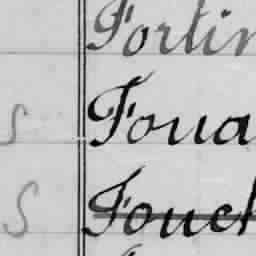 Fortin
S Foua
S Fouch